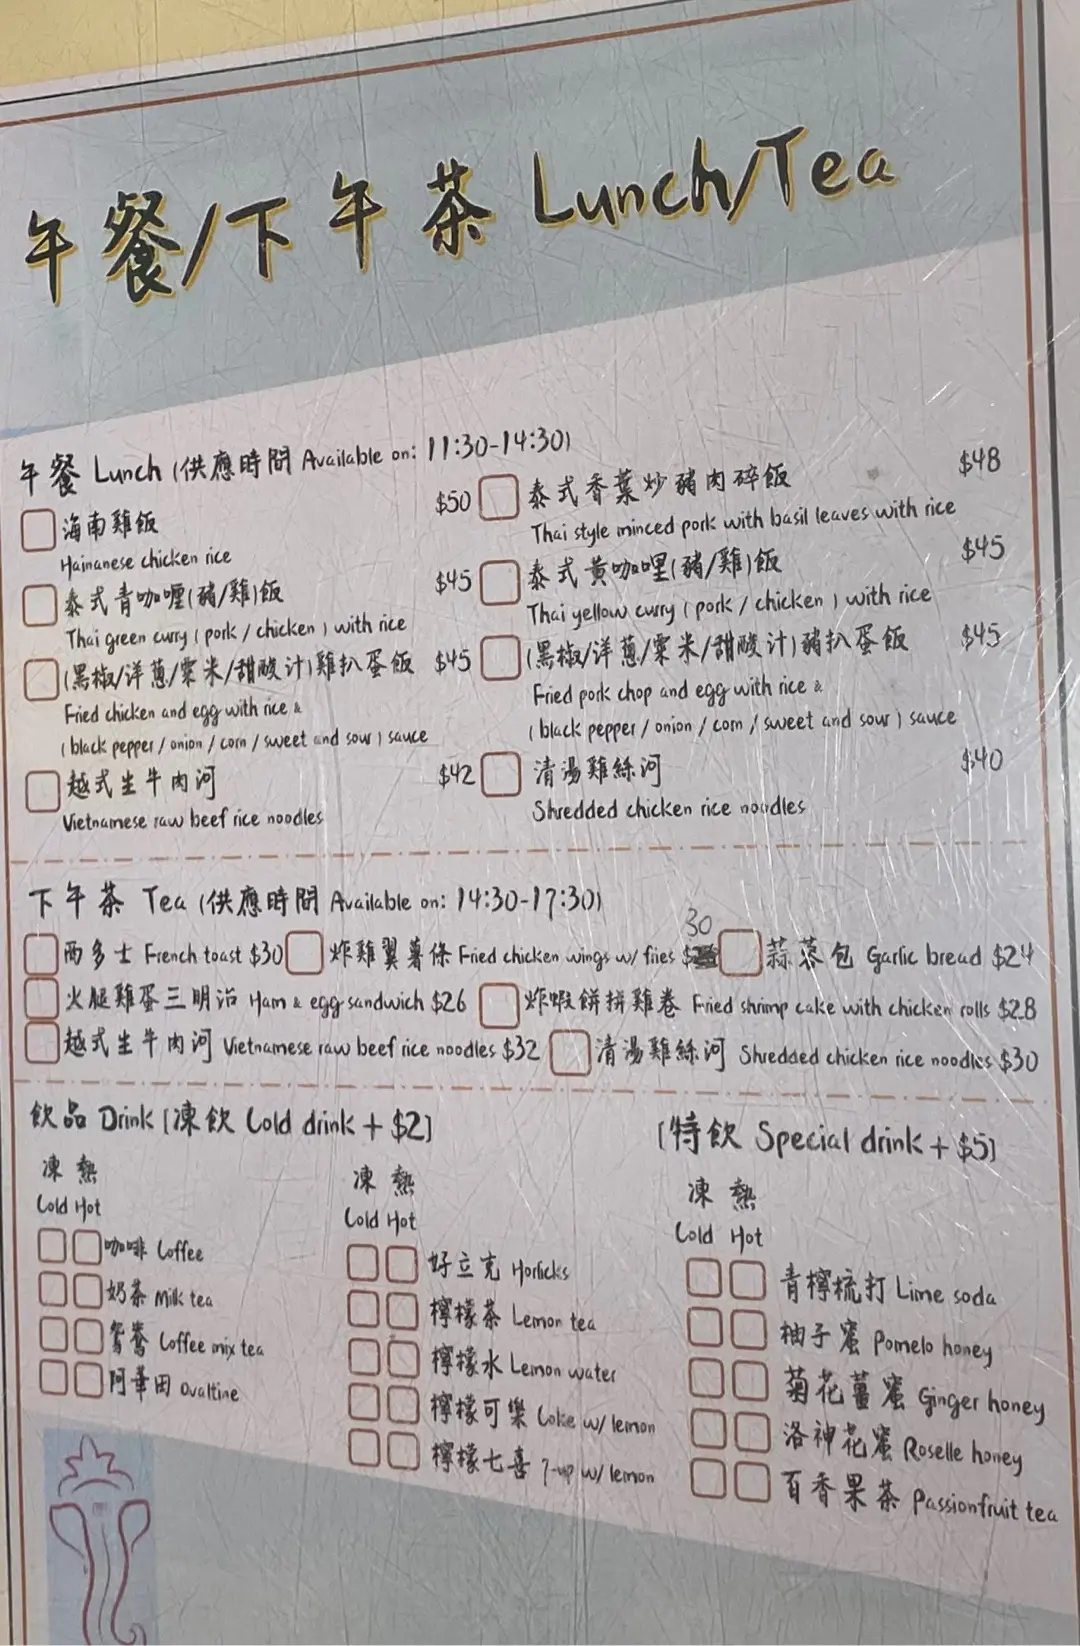 午餐/下午茶 Lunch/Tea
午餐 Lunch (供應時間 Available on: 11:30-14:30)
海南雞飯 $50
Hainanese chicken rice
泰式香葉炒豬肉碎飯 $48
Thai style minced pork with basil leaves with rice
泰式青咖喱(豬/雞)飯 $45
Thai green curry (pork / chicken) with rice
泰式黃咖哩(豬/雞)飯 $45
Thai yellow curry (pork / chicken) with rice
(黑椒/洋蔥/粟米/甜酸汁)雞扒蛋飯 $45
Fried chicken and egg with rice &
(black pepper / onion / corn / sweet and sour) sauce
(黑椒/洋蔥/粟米/甜酸汁)豬扒蛋飯 $45
Fried pork chop and egg with rice &
(black pepper / onion / corn / sweet and sour) sauce
越式生牛肉河 $42
Vietnamese raw beef rice noodles
清湯雞絲河 $40
Shredded chicken rice noodles
下午茶 Tea (供應時間 Available on: 14:30-17:30)
30
西多士 French toast $30 炸雞翼薯條 Fried chicken wings w/ fries $ 蒜蓉包 Garlic bread $24
火腿雞蛋三明治 Ham & egg sandwich $26 炸蝦餅拼雞卷 Fried shrimp cake with chicken rolls $28
越式生牛肉河 Vietnamese raw beef rice noodles $32 清湯雞絲河 Shredded chicken rice noodles $30
飲品 Drink [凍飲 Cold drink + $2]
凍 熱
Cold Hot
咖啡 Coffee
奶茶 Milk tea
鴛鴦 Coffee mix tea
阿華田 Ovaltine
凍 熱
Cold Hot
好立克 Horlicks
檸檬茶 Lemon tea
檸檬水 Lemon water
檸檬可樂 Coke w/ lemon
檸檬七喜 7-up w/ lemon
[特飲 Special drink + $5]
凍 熱
Cold Hot
青檸梳打 Lime soda
柚子蜜 Pomelo honey
菊花薑蜜 Ginger honey
洛神花蜜 Roselle honey
百香果茶 Passionfruit tea